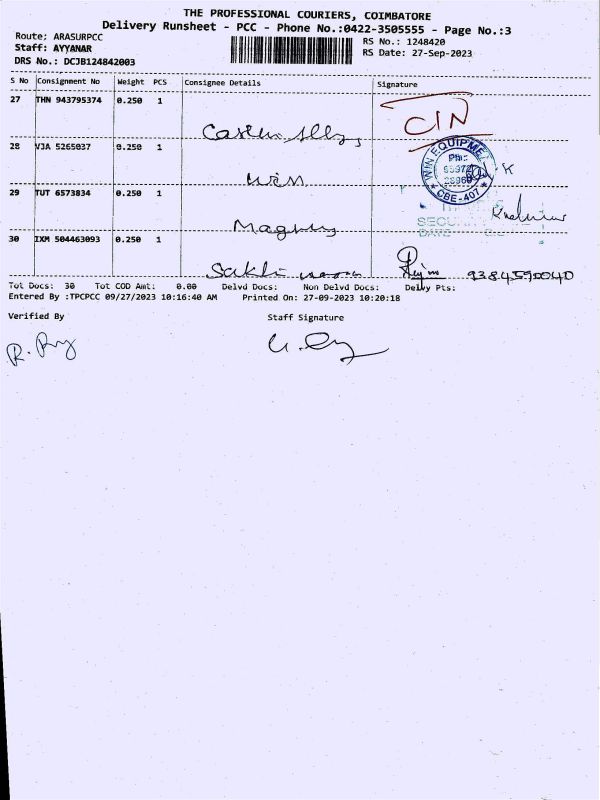 THE PROFESSIONAL COURIERS, COIMBATORE
Delivery Runsheet - PCC - Phone No.:0422-3505555 - Page No.:3
Route; ARASURPCC
RS No.: 1248420
Staff: AYYANAR
RS Date: 27-Sep-2023
DRS No.: DCJB124842003
S No Consignment No Weight PCS Consignee Details Signature
27 THN 943795374 0.250 1
CIN
28 VJA 5265037 0.250 1
WIN EQUIPME
CBE-407
Win
29 TUT 6573834 0.250 1
SECU
DATE
Magnus
30 IXM 504463093 0.250 1
Sakthi
9384590040
Tot Docs: 30 Tot COD Amt: 0.00 Delvd Docs: Non Delvd Docs: Delvy Pts:
Entered By :TPCPCC 09/27/2023 10:16:40 AM Printed On: 27-09-2023 10:20:18
Verified By Staff Signature